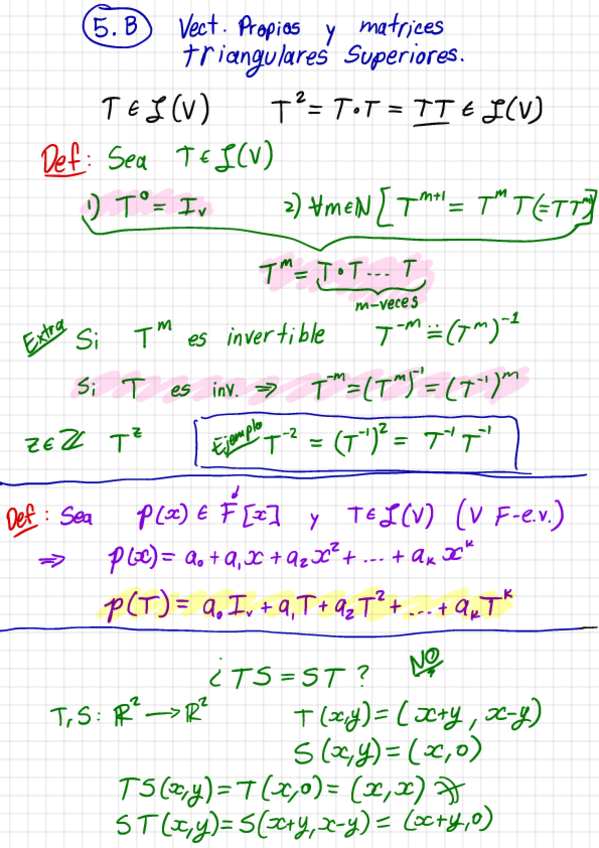 5.B Vect. Propios y matrices
triangulares Superiores.
T ∈ ℒ(V) T² = T∘T = TT ∈ ℒ(V)
Def: Sea T ∈ ℒ(V)
1) T⁰ = Iᵥ 2) ∀m∈ℕ [T^{m+1} = T^m T (=TT^m)]
T^m = T∘T... T
m-veces
Extra Si T^m es invertible T^{-m} ≐ (T^m)^{-1}
Si T es inv. ⇒ T^{-m} = (T^m)^{-1} = (T^{-1})^m
z∈ℤ T^z Ejemplo T^{-2} = (T^{-1})² = T^{-1} T^{-1}
Def: Sea p(x) ∈ F[x] y T∈ℒ(V) (V F-e.v.)
⇒ p(x) = a₀ + a₁x + a₂x² + ... + aₖx^k
p(T) = a₀Iᵥ + a₁T + a₂T² + ... + aₖT^k
¿TS = ST? NO
T,S: ℝ² → ℝ² T(x,y) = (x+y, x-y)
S(x,y) = (x,0)
TS(x,y) = T(x,0) = (x,x)
ST(x,y) = S(x+y, x-y) = (x+y,0)